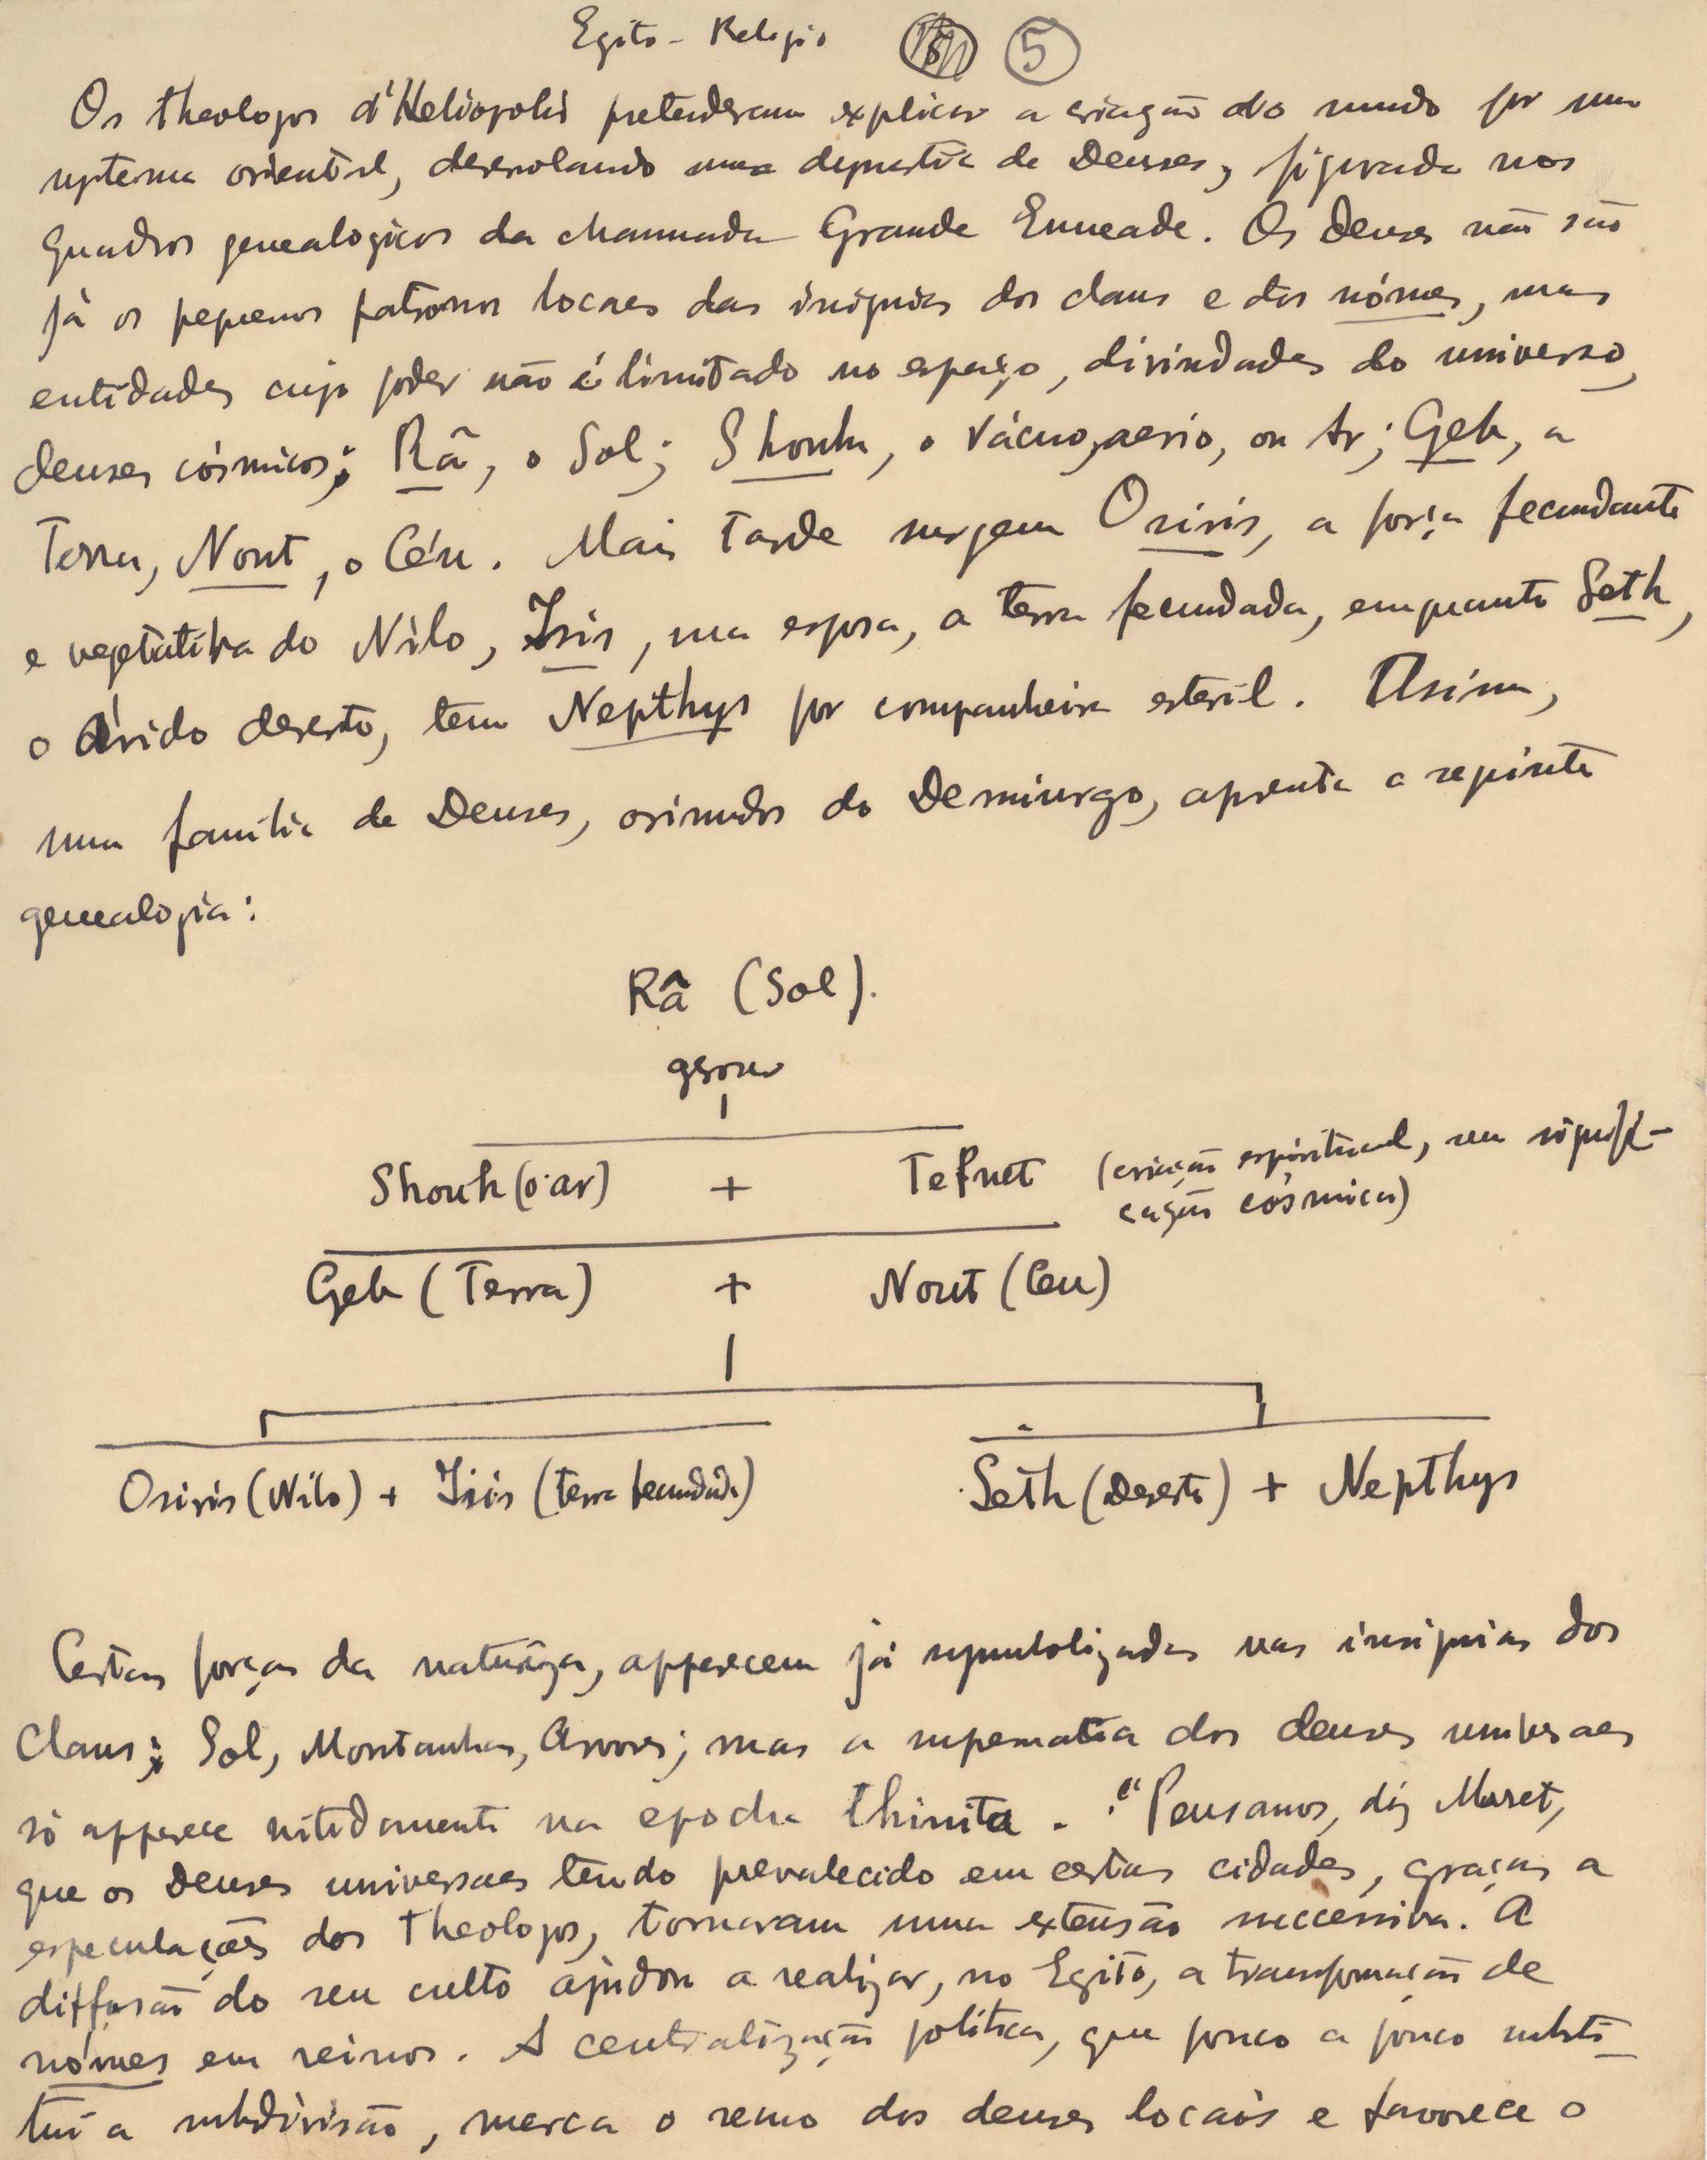 Egito - Religião 5
Os theologos d'Heliopolis pretenderam explicar a criação do mundo por um
systema oriental, desenrolando uma dynastia de Deuses, figurada nos
quadros genealogicos da chamada Grande Enneade. Os deuses não são
já os pequenos patronos locaes das insignias dos clans e dos nómes, mas
entidades cujo poder não é limitado no espaço, divindades do universo,
deuses cósmicos: Râ, o Sol; Shouh, o vácuo, aerio, ou Ar; Geb, a
Terra, Nout, o Céu. Mais tarde surgem Osiris, a força fecundante
e vegetativa do Nilo, Isis, sua esposa, a terra fecundada, emquanto Seth,
o árido deserto, tem Nepthys por companheira esteril. Assim,
uma familia de Deuses, oriundos do Demiurgo, apresenta a seguinte
genealogia:
Râ (Sol).
gerou
Shouh (o ar) + Tefnet (criação espiritual, sem signifi-
cação cósmica)
Geb (Terra) + Nout (Ceu)
Osiris (Nilo) + Isis (terra fecundada) Seth (Deserto) + Nepthys
Certas forças da natureza, apparecem já symbolizadas nas insignias dos
Clans: Sol, Montanhas, Arvores; mas a supremacia dos deuses universaes
só apparece nitidamente na epocha thinita. "Pensamos, diz Moret,
que os Deuses universaes tendo prevalecido em certas cidades, graças a
especulações dos Theologos, tomaram uma extensão successiva. A
diffusão do seu culto ajudou a realizar, no Egito, a transformação de
nómes em reinos. A centralização politica, que pouco a pouco substi-
tui a subdivisão, merca o remo dos deuses locais e favorece o